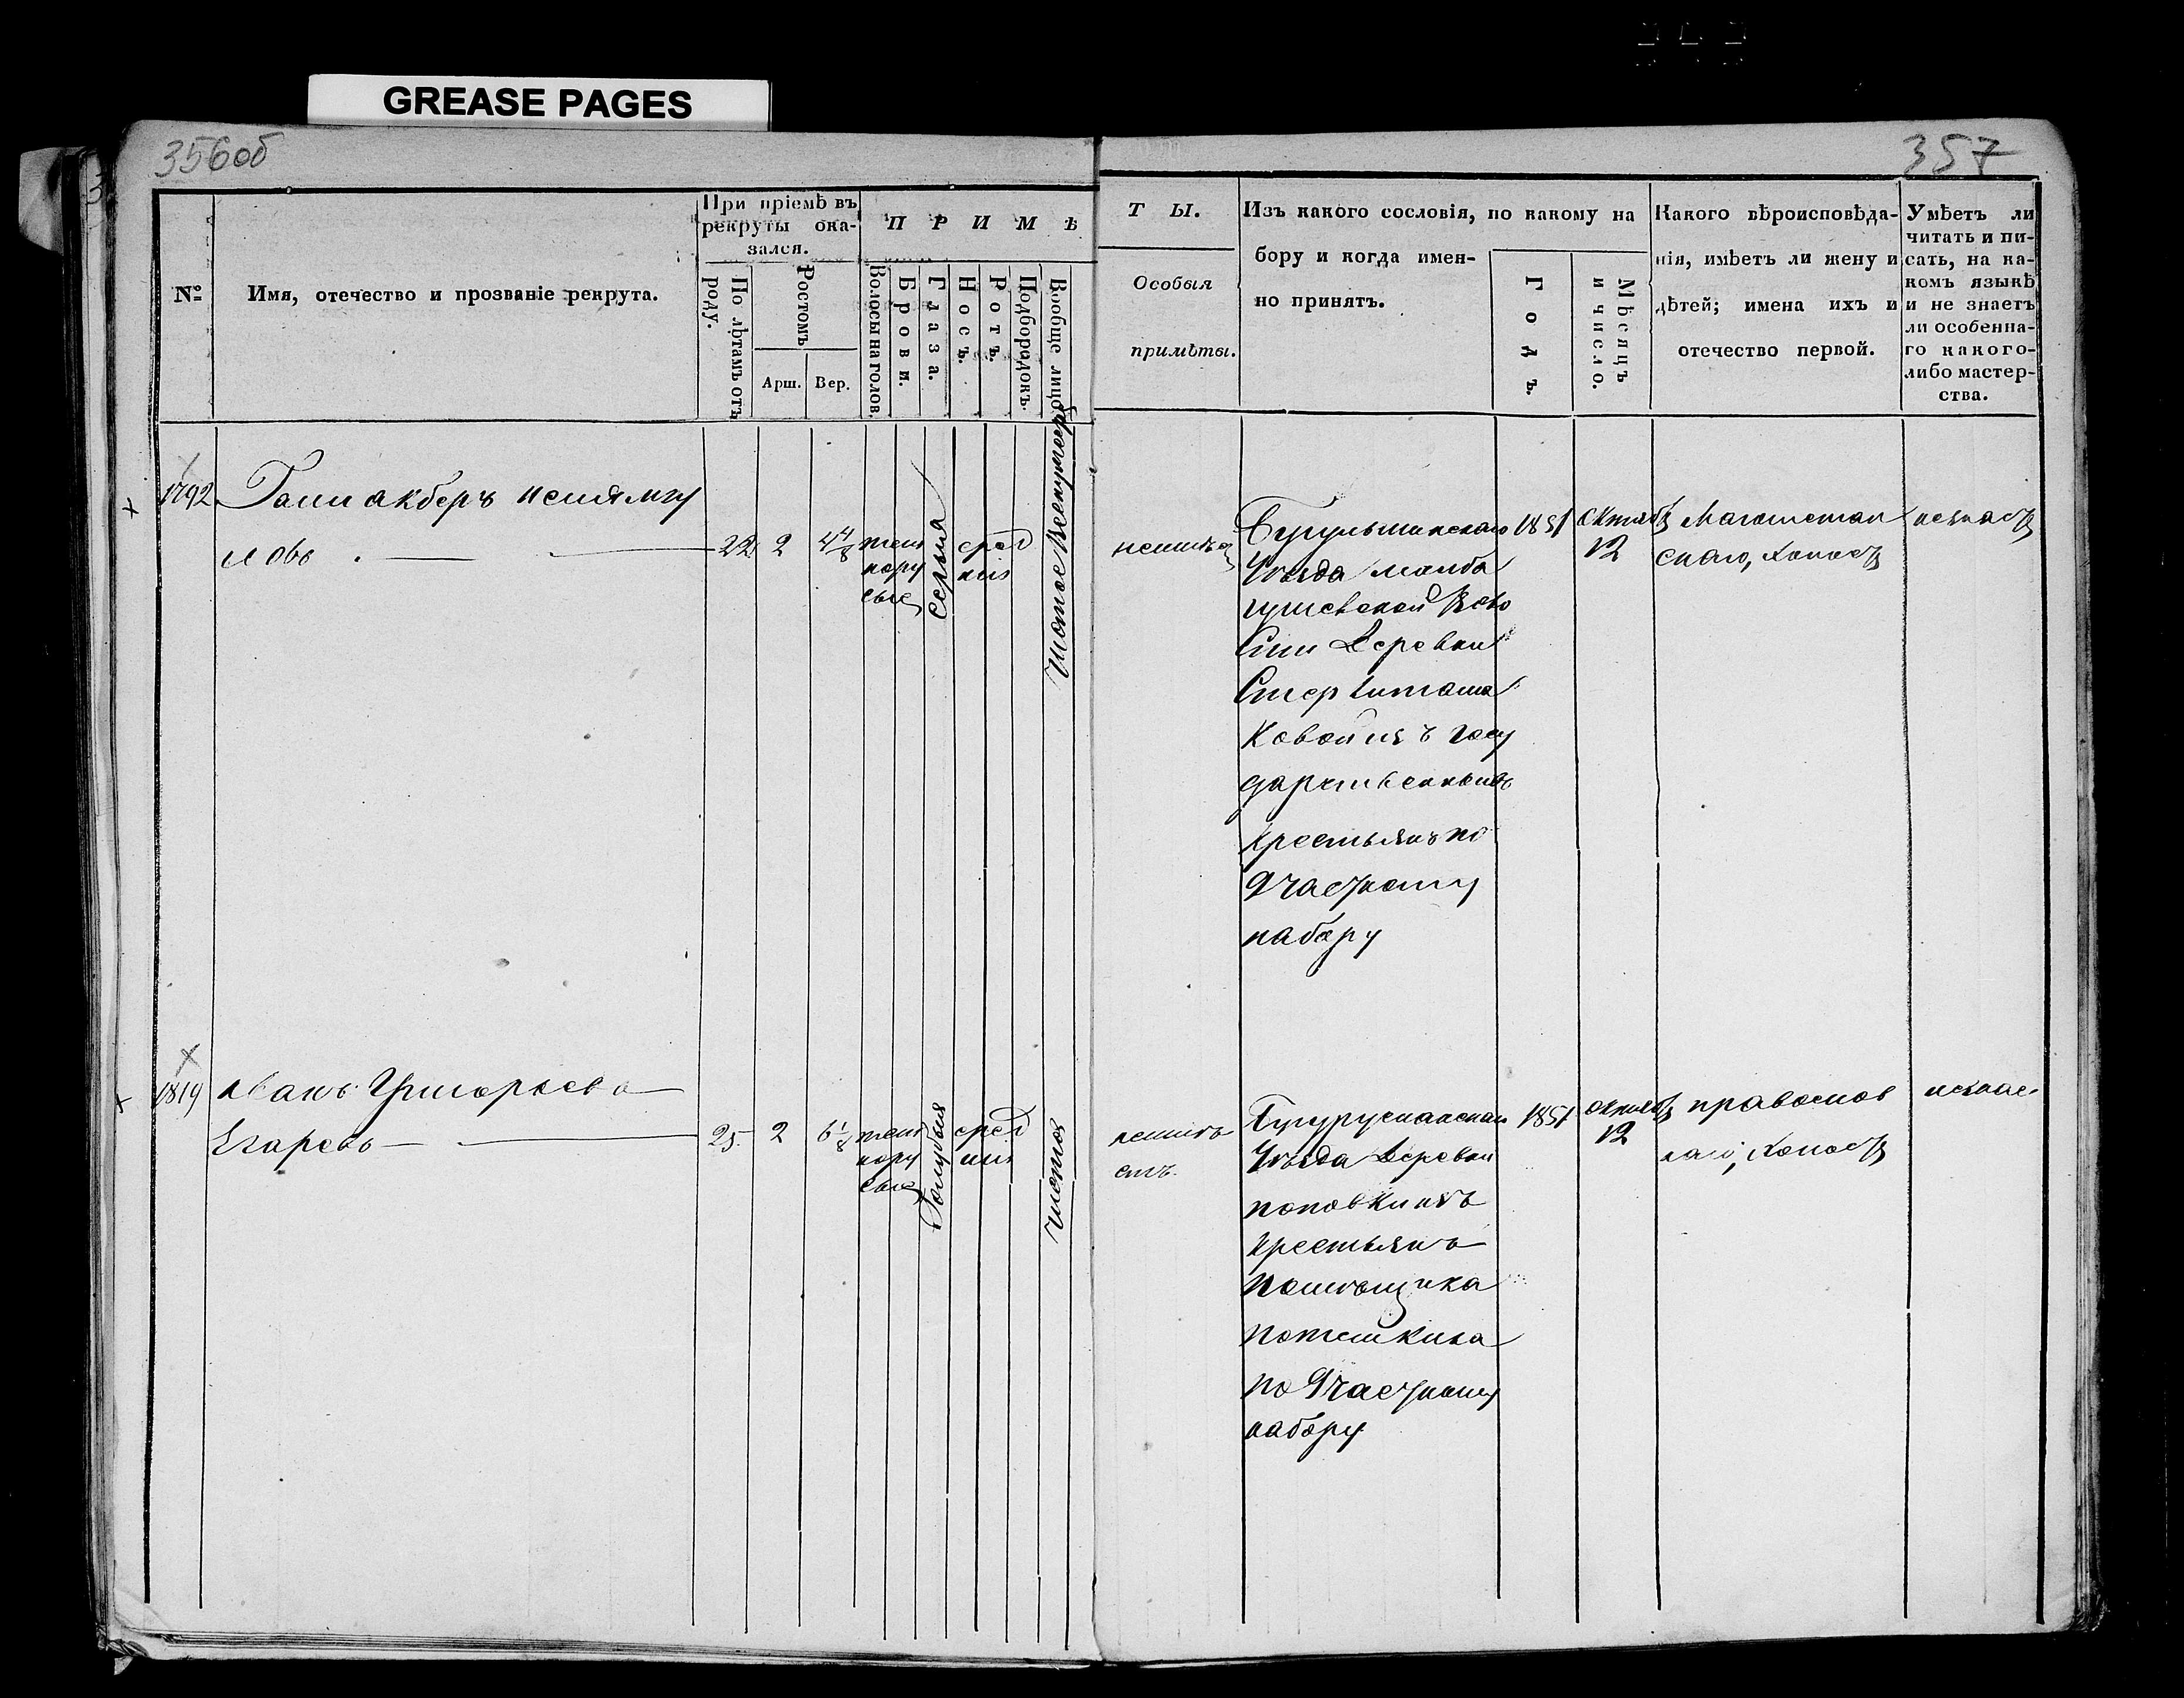 GREASE PAGES
356об
357
№
Имя, отечество и прозваніе рекрута.
При пріемѣ въ
рекруты ока-
зался.
По лѣтамъ отъ
роду.
Ростомъ
Арш.
Вер.
П Р И М Ѣ
Волосы на голов.
Брови.
Глаза.
Носъ.
Ротъ.
Подбородокъ.
Вообще лицо.
Т Ы.
Особыя
примѣты.
Изъ какого сословія, по какому на
бору и когда имен-
но принятъ.
Годъ.
Мѣсяцъ
и число.
Какого вѣроисповѣда-
нія, имѣетъ ли жену и
дѣтей; имена ихъ и
отечество первой.
Умѣетъ ли
читать и пи-
сать, на ка-
комъ языкѣ
и не знаетъ
ли особенна-
го какого-
либо мастер-
ства.
1792
22
2
4 4/8
темно
русые
серыя
сред
ніи
неимѣет
Бугульминскаго
Уѣзда
Деревни
ковой изъ госу
дарственныхъ
крестьянъ по
9 частному
набору
1851
Октября
12
Магометан
скаго, холост
незнает
1819
Иванъ Григорьевъ
Егаревъ
25
2
6 1/8
темно
русые
Голубыя
сред
ніи
чистое
неимѣ
етъ.
Бугурусланскаго
Уѣзда Деревни
поповки изъ
крестьянъ
помѣщика
потемкина
по 9 частному
набору
1851
октября
12
православ
наго, холост
незнае